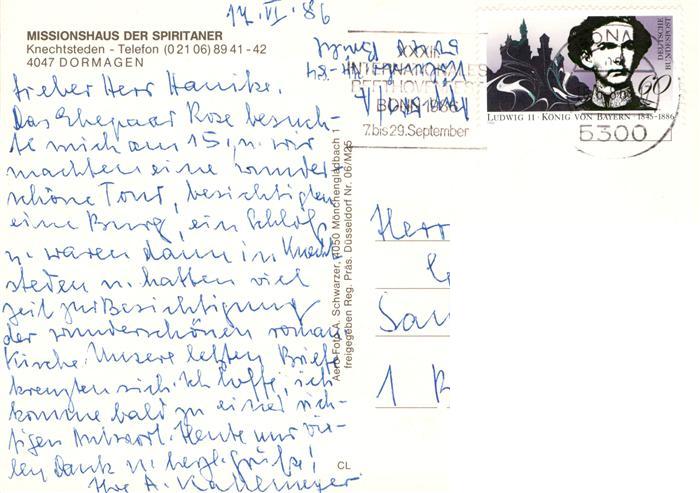 17. VI. 86
MISSIONSHAUS DER SPIRITANER
Knechtsteden - Telefon (0 21 06) 89 41 - 42
4047 DORMAGEN
Lieber Herr Hanike.
Das Ehepaar Rose besuch-
te mich am 15., u. wir
machten eine wunder
schöne Tour, besichtigten
eine Burg, ein Schloß
u. waren dann in Knecht
steden u. hatten viel
Zeit zur Besichtigung
der wunderschönen roman
Kirche. Unsere letzten Briefe
kreuzten sich. Ich hoffe, ich
komme bald zu einer rich-
tigen Antwort. Heute nur vie-
len Dank u. herzl. Grüße!
Ihre A. Kahlemeyer.
CL
Aero-Foto A. Schwarzer, 4050 Mönchengladbach 1
freigegeben Reg. Präs. Düsseldorf Nr. 06/M25
XXXII.
INTERNATIONALES
BEETHOVENFEST
BONN 1986
7. bis 29. September
5300 Bonn 1
DEUTSCHE
BUNDESPOST
60
LUDWIG II · KÖNIG VON BAYERN · 1845-1886
BONN
5300
Herr
1